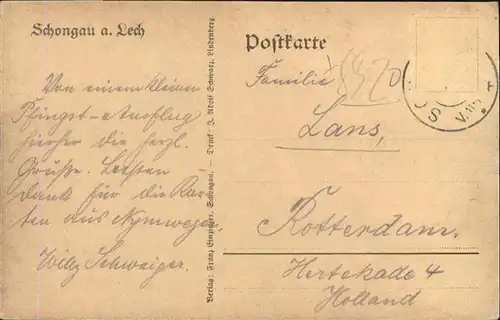 Schongau a. Lech
Von einem kleinen
Pfingst-Ausflug
hierher die herzl.
Grüße. Besten
Dank für die Kar-
ten aus Nymwegen.
Willy Schwaiger.
Verlag: Franz Schongau. — Druck: J. Adolf Schwarz, Lindenberg.
Postkarte
Familie
Lans,
Rotterdam.
Hertekade 4
Holland